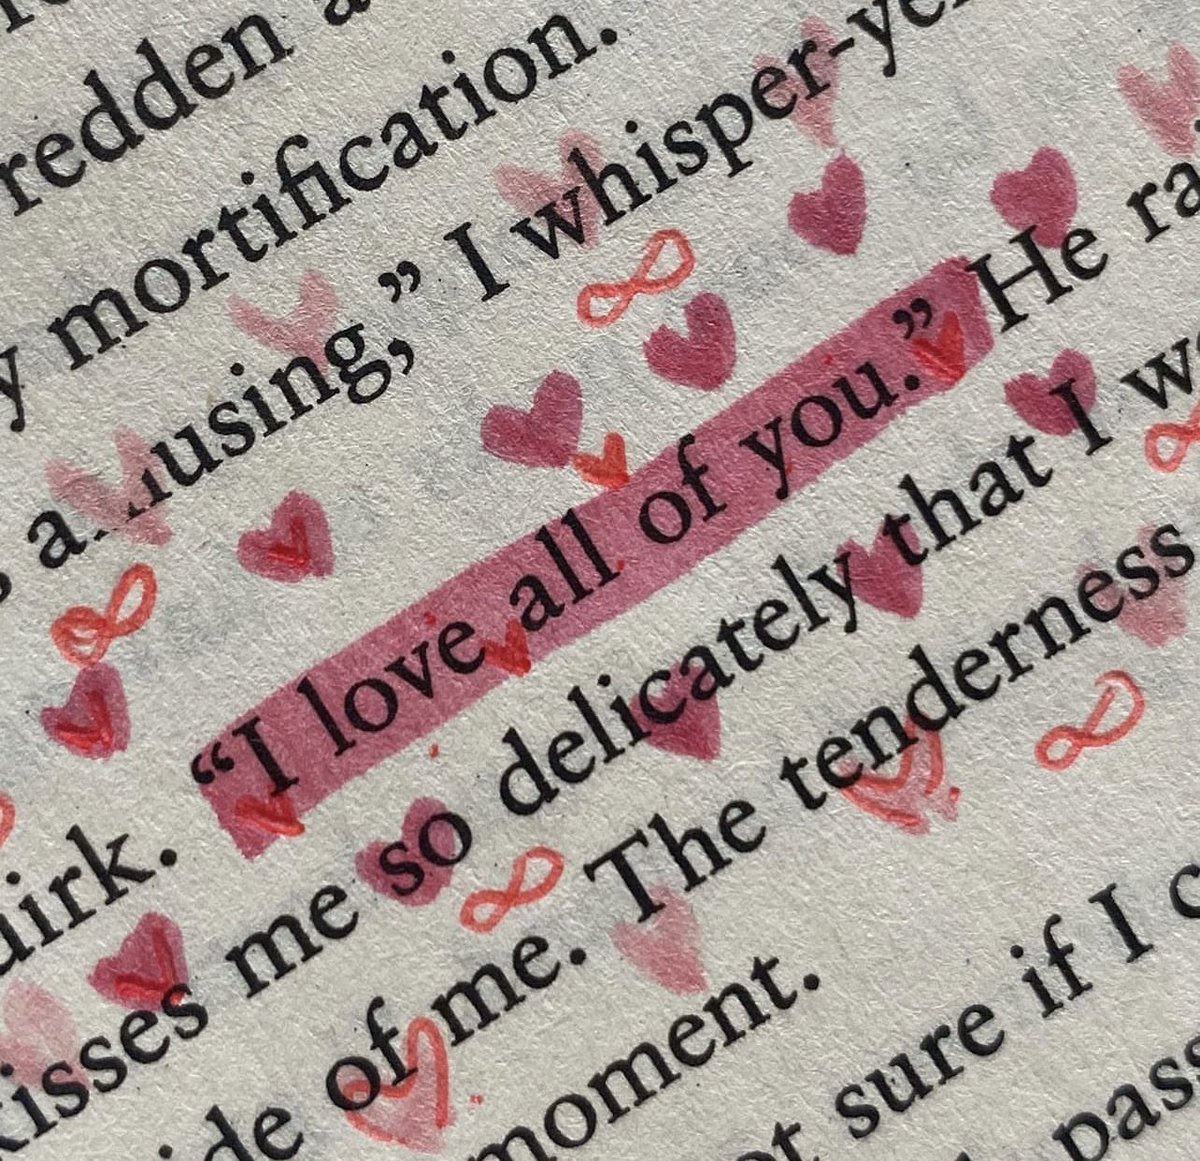 redden
mortification.
amusing,” I whisper-
“I love all of you.” He
kisses me so delicately that I
of me. The tenderness
moment.
sure if I